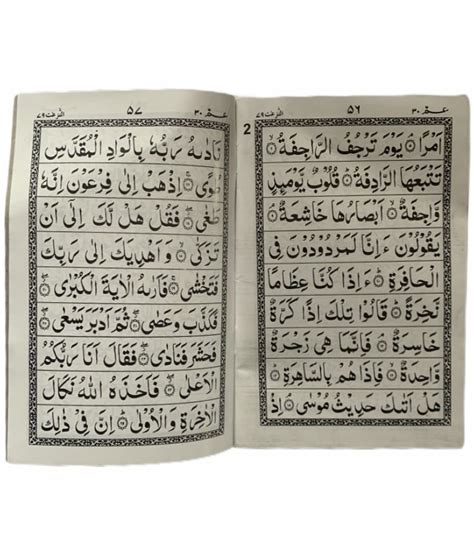 عـم ٣٠ ٥٦ النّٰزعٰت ٧٩
2
اَمْرًا ۝ يَوْمَ تَرْجُفُ الرَّاجِفَةُ ۝
تَتْبَعُهَا الرَّادِفَةُ ۝ قُلُوْبٌ يَّوْمَىِٕذٍ
وَّاجِفَةٌ ۝ اَبْصَارُهَا خَاشِعَةٌ ۝
يَقُوْلُوْنَ ءَاِنَّا لَمَرْدُوْدُوْنَ فِى
الْحَافِرَةِ ۝ ءَاِذَا كُنَّا عِظَامًا
نَّخِرَةً ۝ قَالُوْا تِلْكَ اِذًا كَرَّةٌ
خَاسِرَةٌ ۝ فَاِنَّمَا هِىَ زَجْرَةٌ
وَّاحِدَةٌ ۝ فَاِذَا هُمْ بِالسَّاهِرَةِ ۝
هَلْ اَتٰىكَ حَدِيْثُ مُوْسٰى ۝ اِذْ
عـم ٣٠ ٥٧ النّٰزعٰت ٧٩
نَادٰىهُ رَبُّهٗ بِالْوَادِ الْمُقَدَّسِ
طُوًى ۝ اِذْهَبْ اِلٰى فِرْعَوْنَ اِنَّهٗ
طَغٰى ۝ فَقُلْ هَلْ لَّكَ اِلٰٓى اَنْ
تَزَكّٰى ۝ وَاَهْدِيَكَ اِلٰى رَبِّكَ
فَتَخْشٰى ۝ فَاَرٰىهُ الْاٰيَةَ الْكُبْرٰى ۝
فَكَذَّبَ وَعَصٰى ۝ ثُمَّ اَدْبَرَ يَسْعٰى ۝
فَحَشَرَ فَنَادٰى ۝ فَقَالَ اَنَا رَبُّكُمُ
الْاَعْلٰى ۝ فَاَخَذَهُ اللّٰهُ نَكَالَ
الْاٰخِرَةِ وَالْاُوْلٰى ۝ اِنَّ فِيْ ذٰلِكَ